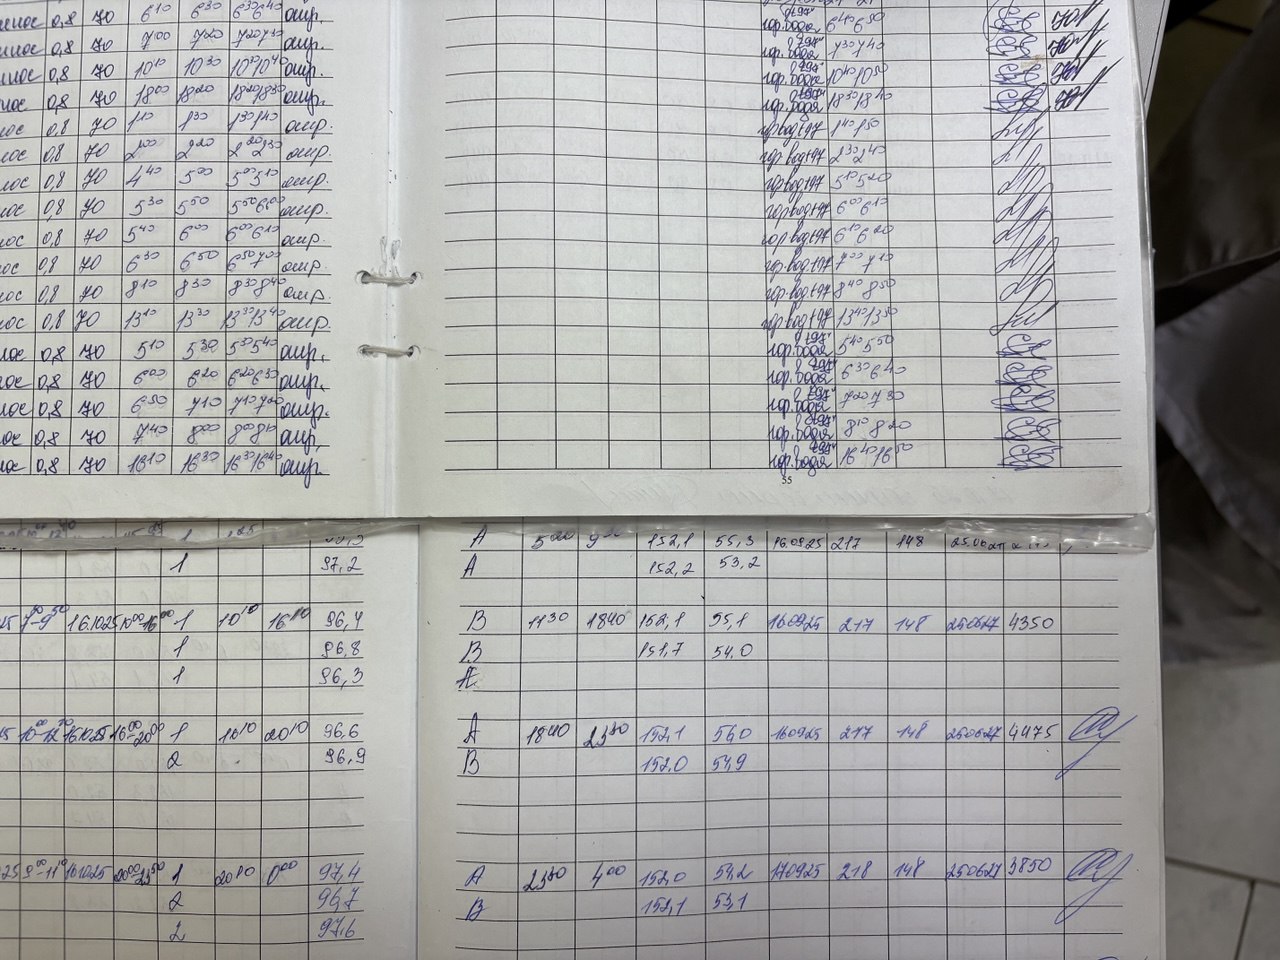 0,8 70 6 10 6 30 6 30 6 40 отр. гор.вода 6 40 6 50
нос 0,8 70 7 00 7 20 7 20 7 30 отр. гор.вода 7 30 7 40
нос 0,8 70 10 10 10 30 10 30 10 40 отр. гор.вода 10 40 10 50
нос 0,8 70 18 00 18 20 18 20 18 30 отр. гор.вода 18 30 18 40
нос 0,8 70 1 10 1 30 1 30 1 40 отр. гор.вод +97 1 40 1 50
нос 0,8 70 2 00 2 20 2 20 2 30 отр. гор.вод +97 2 30 2 40
нос 0,8 70 4 40 5 00 5 00 5 10 отр. гор.вод +97 5 10 5 20
нос 0,8 70 5 30 5 50 5 50 6 00 отр. гор.вод +97 6 00 6 10
нос 0,8 70 5 40 6 00 6 00 6 10 отр. гор.вод +97 6 10 6 20
ос 0,8 70 6 30 6 50 6 50 7 00 отр. гор.вод +97 7 00 7 10
нос 0,8 70 8 10 8 30 8 30 8 40 отр. гор.вод +97 8 40 8 50
ос 0,8 70 13 10 13 30 13 30 13 40 отр. гор.вод +97 13 40 13 50
ос 0,8 70 5 10 5 30 5 30 5 40 отр. гор.вода 5 40 5 50
ос 0,8 70 6 00 6 20 6 20 6 30 отр. гор.вода 6 30 6 40
ос 0,8 70 6 50 7 10 7 10 7 20 отр. гор.вода 7 20 7 30
ос 0,8 70 7 40 8 00 8 00 8 10 отр. гор.вода 8 10 8 20
ос 0,8 70 16 10 16 30 16 30 16 40 отр. гор.вода 16 40 16 50
55
1 А 5 00 9 152,1 55,3 160925 217 148 2506
1 97,2 А 152,2 53,2
25 7 00-9 50 161025 10 00 16 00 1 10 10 16 10 96,4 В 11 30 18 40 152,1 55,1 160925 217 148 250627 4350
1 96,8 В 151,7 54,0
1 96,3
25 10 00-12 161025 16 00-20 00 1 16 10 20 10 96,6 А 18 40 23 30 152,1 56,0 160925 217 148 250627 4475
2 96,9 В 152,0 54,9
25 9 00-11 10 161025 20 00 23 50 1 20 10 0 00 97,4 А 23 30 4 00 152,0 53,2 170925 218 148 250627 3850
2 96,7 В 152,1 53,1
2 97,6